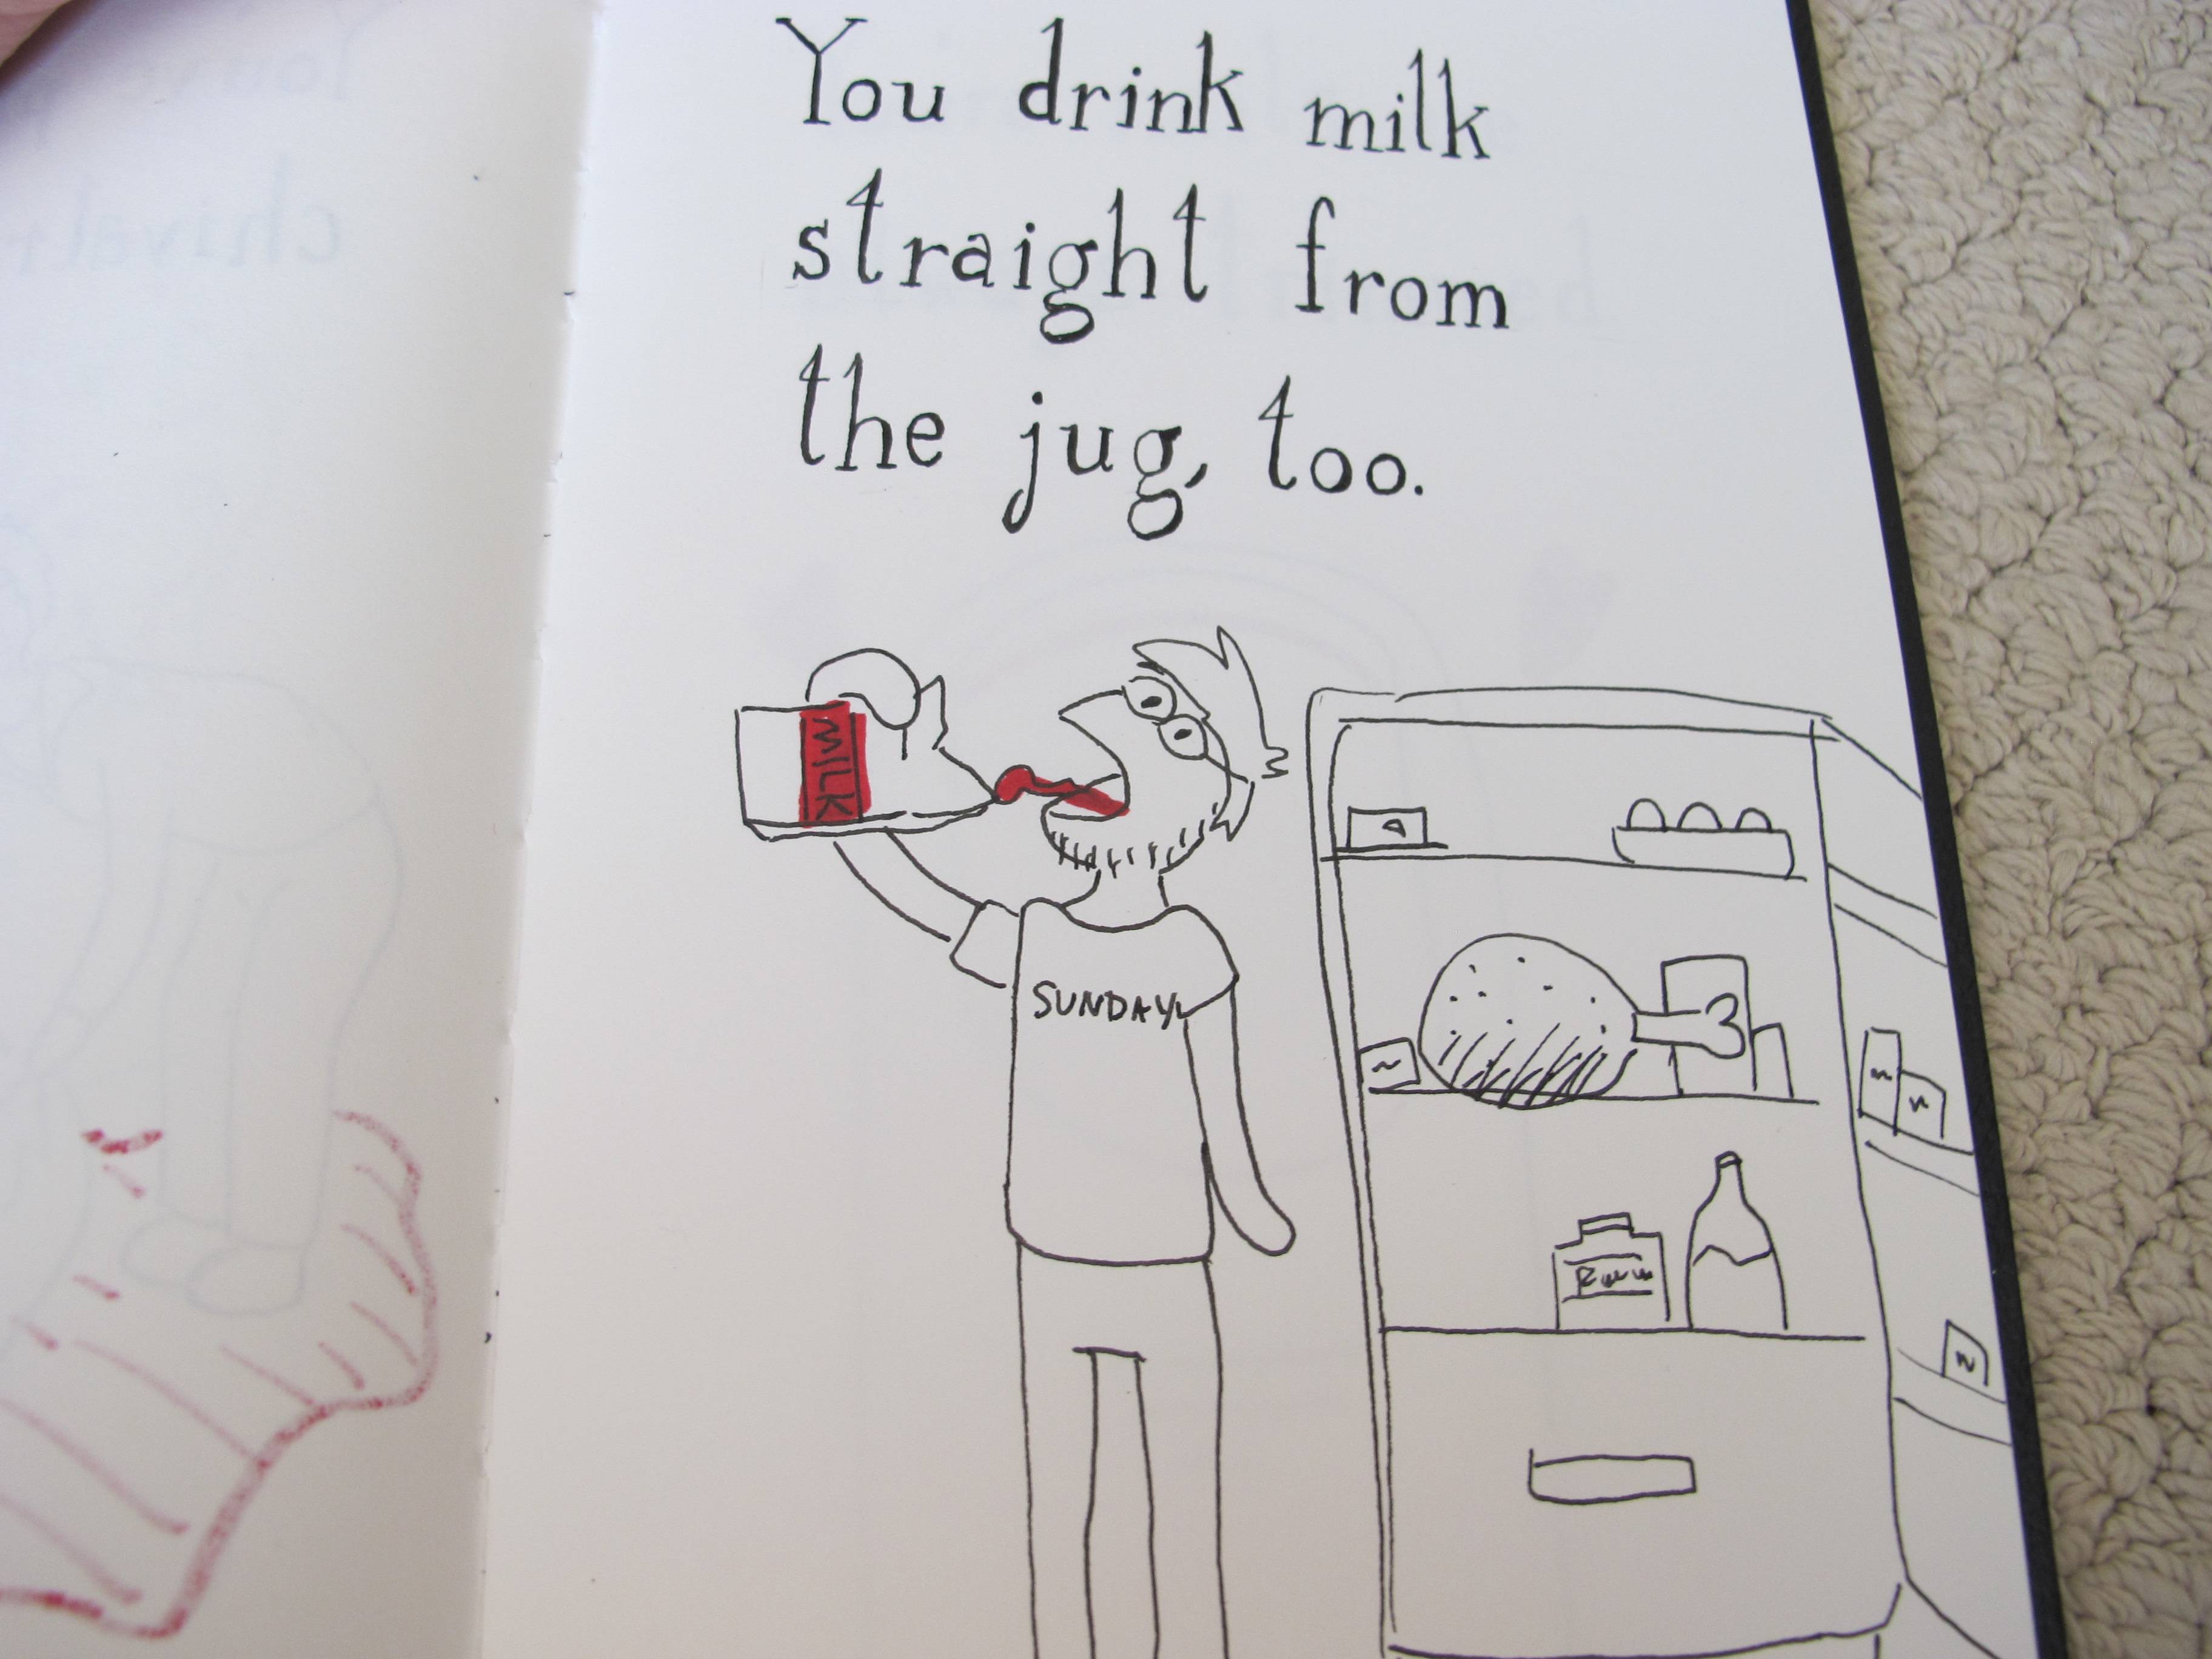 You drink milk
straight from
the jug, too.
MILK
SUNDAY